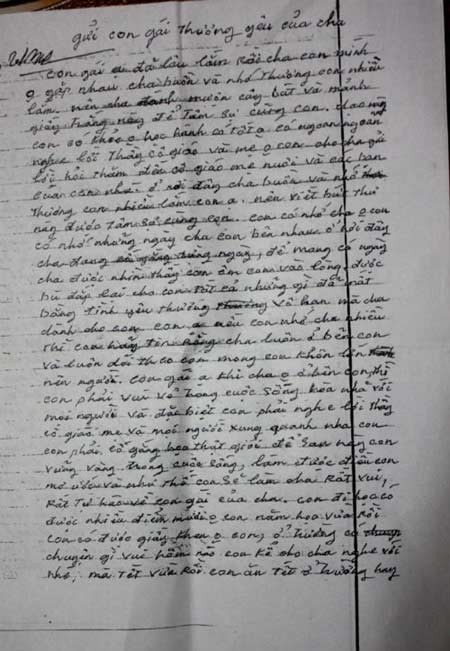 gửi con gái thương yêu của cha
con gái ạ đã lâu lắm rồi cha con mình
o gặp nhau cha buồn và nhớ thương con nhiều
lắm. nên cha đành mượn cây bút và mảnh
giấy trắng này để tâm sự cùng con. dạo này
con có khỏe o học hành có tốt o có ngoan ngoãn
nghe lời thầy cô giáo và mẹ o con cho cha gửi
lời hỏi thăm đến cô giáo mẹ nuôi và các bạn
của con nhé. ở nơi đây cha buồn và nhớ
thương con nhiều lắm con ạ. nên viết bức thư
này được tâm sự cùng con. con có nhớ cha o con
có nhớ những ngày cha con bên nhau o ở nơi đây
cha đang cố gắng từng ngày, để mong có ngày
cha được nhìn thấy con ôm con vào lòng, được
bù đắp lại cho con tất cả những gì đã mất
bằng tình yêu thương vô hạn mà cha
dành cho con con ạ nếu con nhớ cha nhiều
thì con hãy tin rằng cha luôn ở bên con
và luôn dõi theo con mong con khôn lớn
nên người. con gái ạ khi cha o ở bên con, thì
con phải vui vẻ trong cuộc sống hòa nhã với
mọi người và đặc biệt con phải nghe lời thầy
cô giáo mẹ và mọi người xung quanh nha con
con phải cố gắng học thật giỏi để sau này con
vững vàng trong cuộc sống, làm được điều con
mơ ước và như thế con sẽ làm cha rất vui,
rất tự hào về con gái của cha. con đi học có
được nhiều điểm mười o con năm học vừa rồi
con có được giấy khen o con, ở trường có
chuyện gì vui hôm nào con kể cho cha nghe với
nhé, mà tết vừa rồi con ăn tết ở trường hay